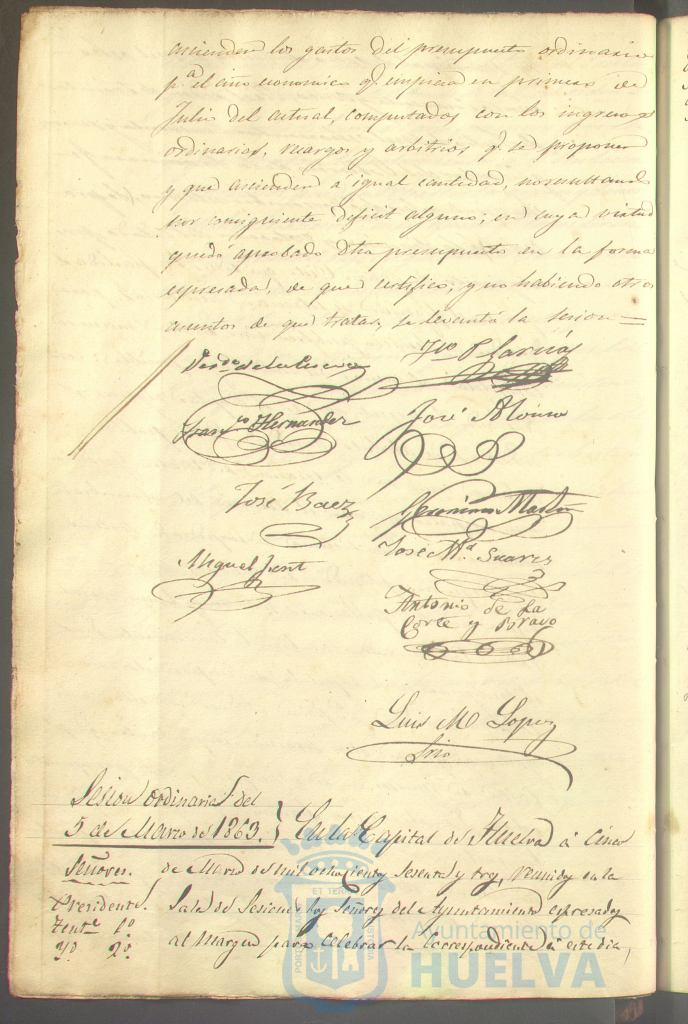 ascienden los gastos del presupuesto ordinario
p.a el año economico q. empieza en primero de
Julio del actual, computados con los ingresos
ordinarios, recargos y arbitrios q. se proponen
y que ascienden á igual cantidad, no resultando
por consiguiente deficit alguno; en cuya virtud
quedó aprobado dho presupuesto en la forma
espresada, de que certifico; y no habiendo otros
asuntos de que tratar, se levantó la sesion=
de la
Garcia
Fran.co Hernandez
José Alonso
José Baez
Geronimo Martin
José M.a Suarez
Miguel
Antonio de La
Corte y Bravo
Luis M Lopez
Srio
Sesion ordinaria del
5 de Marzo de 1863.
En la Capital de Huelva á cinco
Señores.
de Marzo de mil ochocientos Sesenta y tres, reunidos en la
Presidente.
Sala de Sesiones los Señores del Ayuntamiento espresados
Tente 1º
al margen para celebrar la Correspondiente á este dia,
Yd. 2º.
Ayuntamiento de
HUELVA